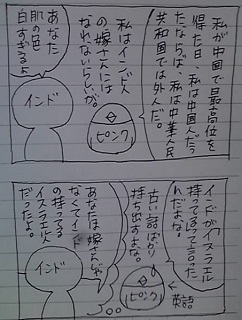 私が中国で最高位を
得た日、私は中国人だっ
たならば、私は中華人民
共和国では外人だ。
私はインド人
の嫁さんには
なれないらしいが。
ピンク
あなた
肌の色
白すぎるよ
インド
インドがイスラエル
持ってるって言った
んだよな。
古い話ばかり
持ち出すよな。
ピンク
英語
あなたは嫁さんじゃ
なくてインド
の持ってる
イスラエル人
だったよ。
インド